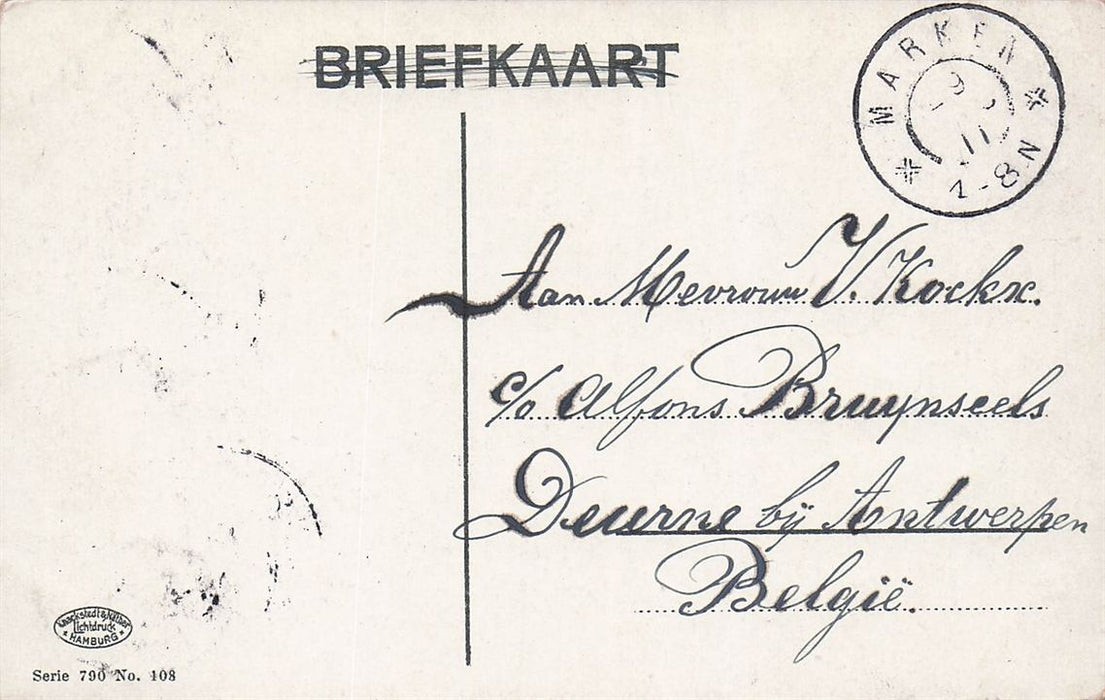 BRIEFKAART
MARKEN
11
7-8N
Aan Mevrouw V. Kockx.
c/o Alfons Bruynseels
Deurne bij Antwerpen
België.
Knackstedt & Näther
Lichtdruck
HAMBURG
Serie 790 No. 108